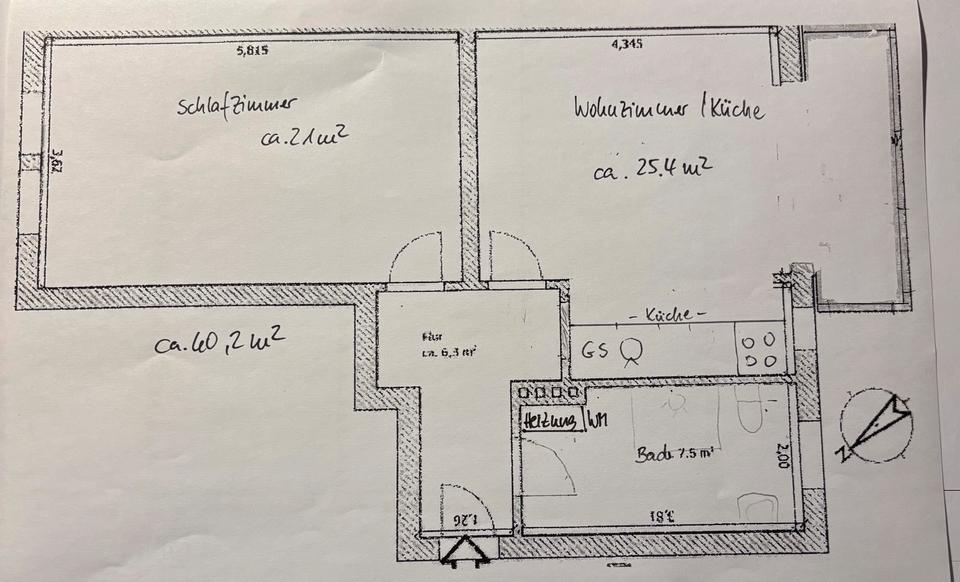 5,815
4,345
Schlafzimmer
ca. 21 m²
Wohnzimmer / Küche
ca. 25.4 m²
3,62
ca. 40,2 m²
Flur
ca. 6,3 m²
- Küche -
GS
Heizung
WM
Bad 7.5 m²
2,00
N
1,26
3,81